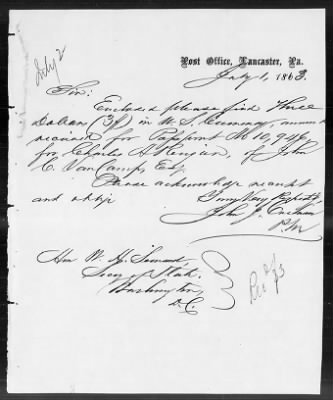 July 2
Post Office, Lancaster, Pa.
July 1, 1863.
Sir:
Enclosed please find three
Dollars (3$) in U.S. Currency, amount
required for Passport No 10,949
for Charles A. of John
C. Van Camp, Esq
Please acknowledge receipt
and oblige Yours Very Respectfy
John J.
P.M
Hon W. H. Seward,
Secy of State.
Washington,
D.C.